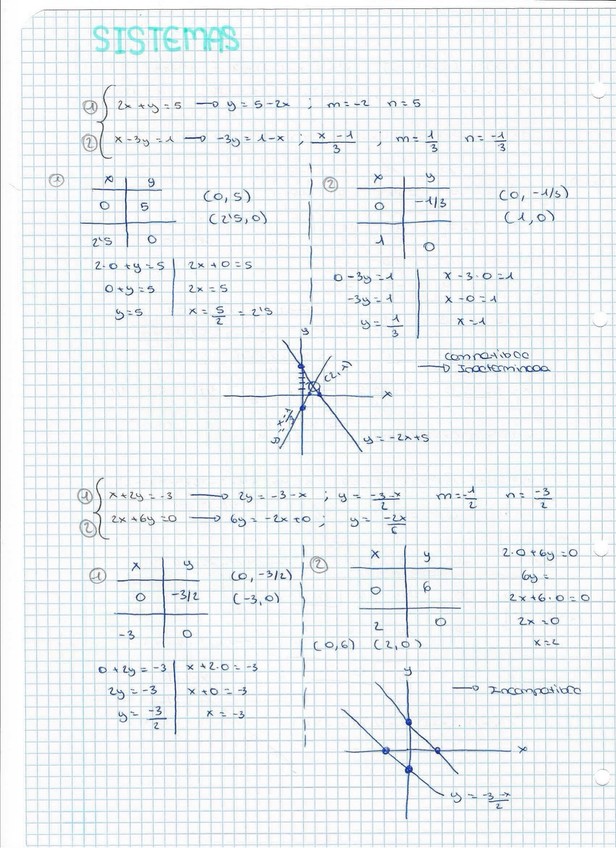 SISTEMAS
① 2x+y=5 → y=5-2x ; m=-2 n=5
② x-3y=1 → -3y=1-x ; x-1/3 ; m=1/3 n=-1/3
① x y
0 5 (0,5)
2'5 0 (2'5,0)
2·0+y=5 2x+0=5
0+y=5 2x=5
y=5 x=5/2=2'5
② x y
0 -1/3 (0,-1/3)
1 0 (1,0)
0-3y=1 x-3·0=1
-3y=1 x-0=1
y=1/3 x=1
y
x
y=-2x+5
Compatible
→ Indeterminada
① x+2y=-3 → 2y=-3-x ; y=-3-x/2 m=-1/2 n=-3/2
② 2x+6y=0 → 6y=-2x+0 ; y=-2x/6
① x y
0 -3/2 (0,-3/2)
-3 0 (-3,0)
0+2y=-3 x+2·0=-3
2y=-3 x+0=-3
y=-3/2 x=-3
② x y
0 6
2 0
(0,6) (2,0)
2·0+6y=0
6y=
2x+6·0=0
2x=0
y
x
→ Incompatible
y=-3-x/2